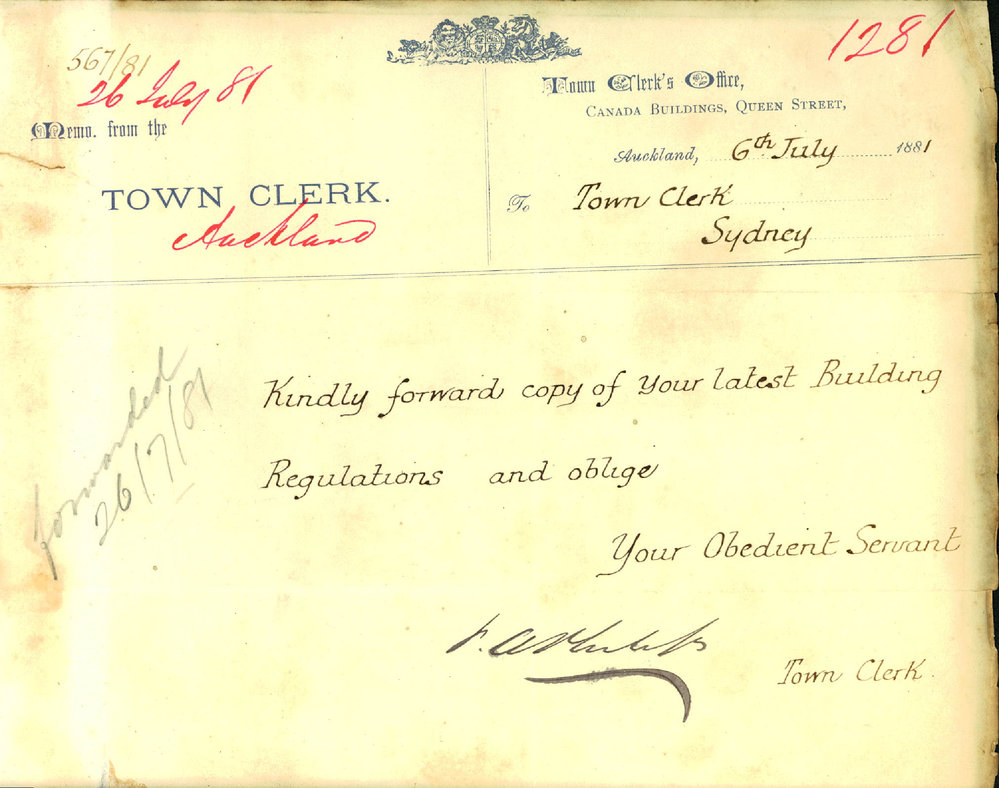 567/81
26 July 81
Memo. from the
TOWN CLERK.
Auckland
1281
Town Clerk's Office,
CANADA BUILDINGS, QUEEN STREET,
Auckland, 6th July 1881
To Town Clerk
Sydney
forwarded
26/7/81
Kindly forward copy of your latest Building
Regulations and oblige
Your Obedient Servant
Town Clerk